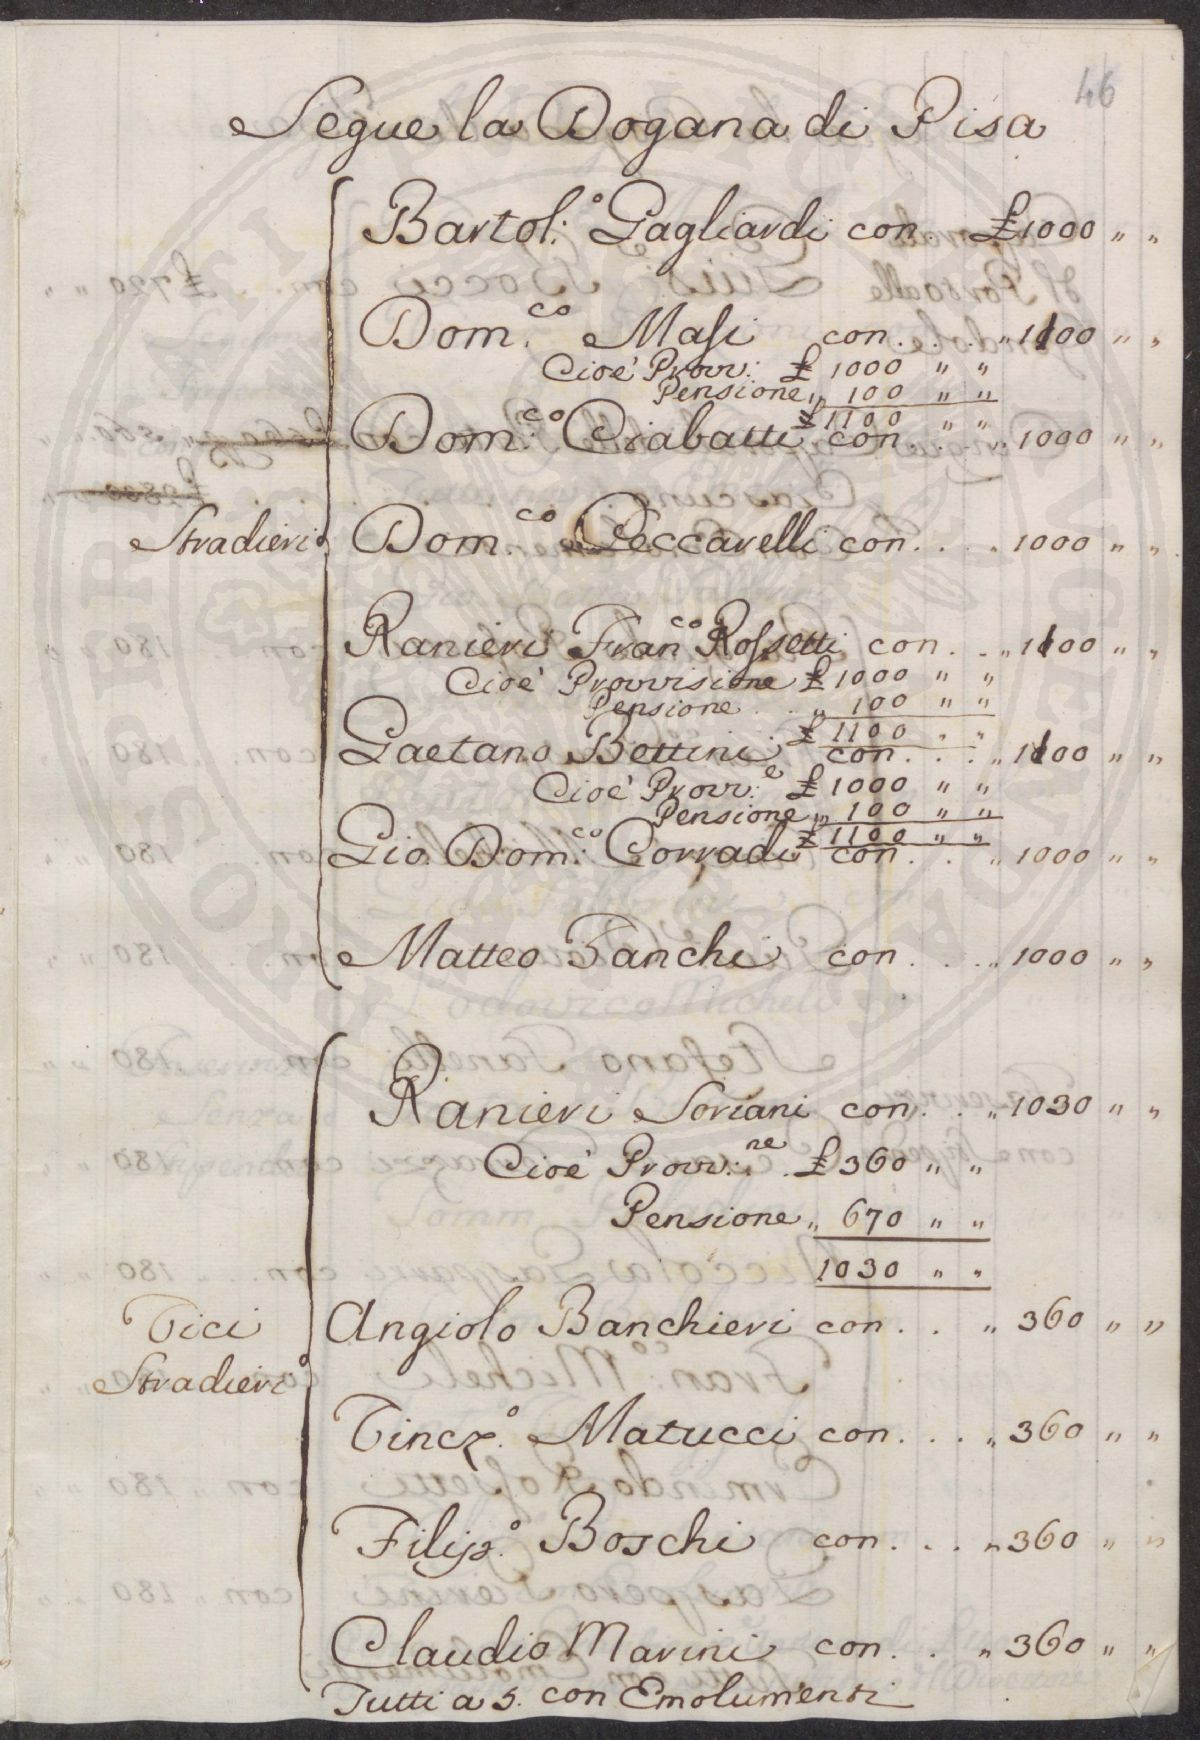 46
Segue la Dogana di Pisa
Bartol:º Gagliardi con £ 1000 " "
Dom.co Massi con . . . " 1100 " "
Cioè Provv: £ 1000 " "
Pensione " 100 " "
£ 1100 " "
Dom:co Ciabatti con . . . . 1000 " "
Stradieri Dom.co Ceccarelli con . . . . 1000 " "
Ranieri Fran.co Rossetti con . . " 1100 " "
Cioè Provvisione £ 1000 " "
Pensione . . " 100 " "
£ 1100 " "
Gaetano Bettini con . . . " 1100 " "
Cioè Provv:e £ 1000 " "
Pensione " 100 " "
£ 1100 " "
Gio. Dom:co Corradi con . . . " 1000 " "
Matteo Fanchi con . . . " 1000 " "
Ranieri Soriani con . . " 1030 " "
Cioè Provv:ne . £ 360 " "
Pensione " 670 " "
1030 " "
Vici Angiolo Banchieri con . . " 360 " "
Stradieri
Vincz.º Matucci con . . . " 360 " "
Filip.º Boschi con . . . " 360 " "
Claudio Marini con . . " 360 " "
Tutti a 5. con Emolumenti